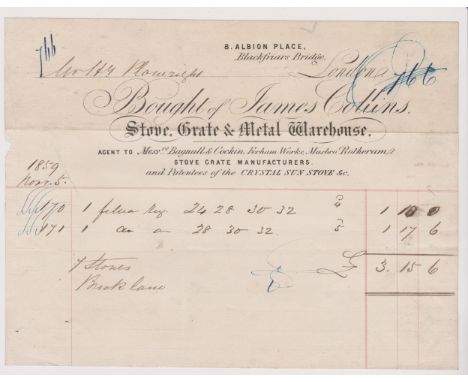 766
8. ALBION PLACE,
Blackfriars Bridge.
Mr Hy Plowright London, 766
Bought of James Collins.
Stove, Grate & Metal Warehouse.
AGENT TO Mess.rs Bagnall & Cockin, Forham Works, Masbro' Rotheram,
STOVE GRATE MANUFACTURERS.
and Patentees of the CRYSTAL SUN STONE &c.
1859
Novr. 5.
170 1 24 28 30 32 1 18 0
171 1 28 30 32 1 17 6
Stones £ 3. 15 6
Brick lane